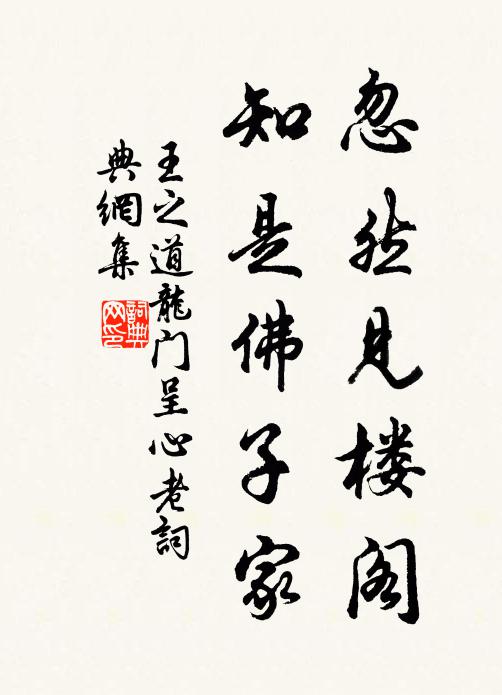 忽然见楼阁
知是佛子家
王之道龍门呈心老詞
典網集
詞典
网印